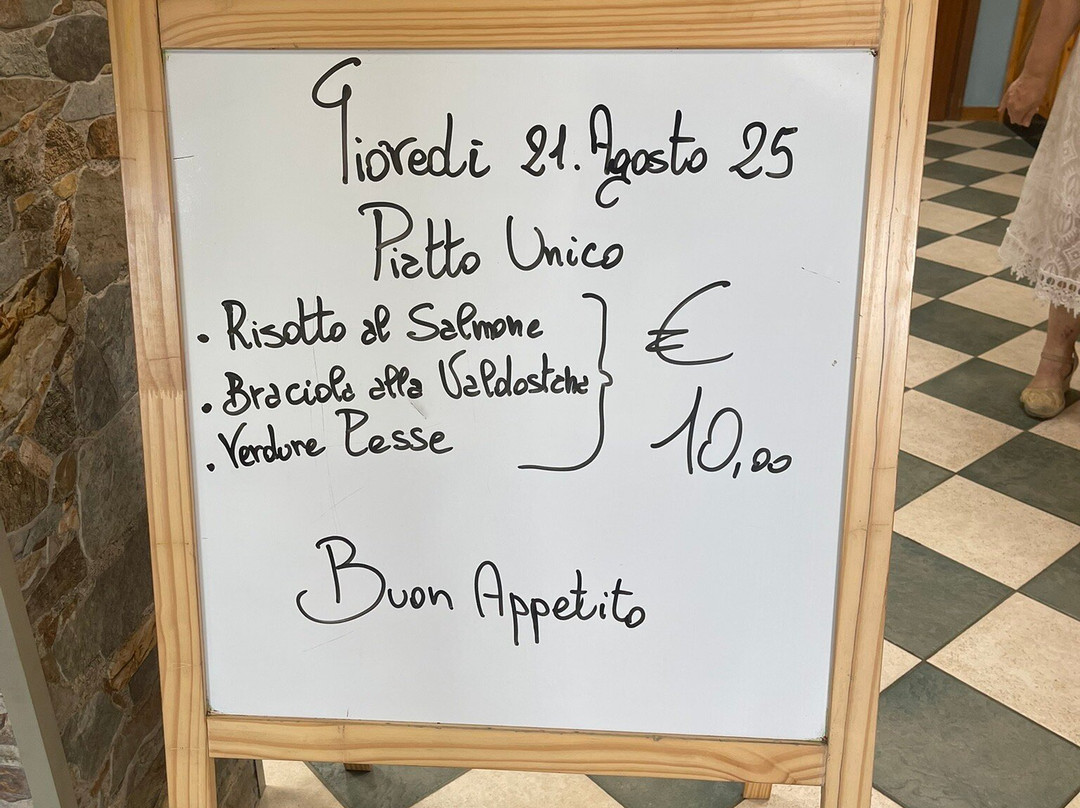 Giovedi 21. Agosto 25
Piatto Unico
. Risotto al Salmone
. Braciola alla Valdostana
. Verdure Lesse
€
10,00
Buon Appetito